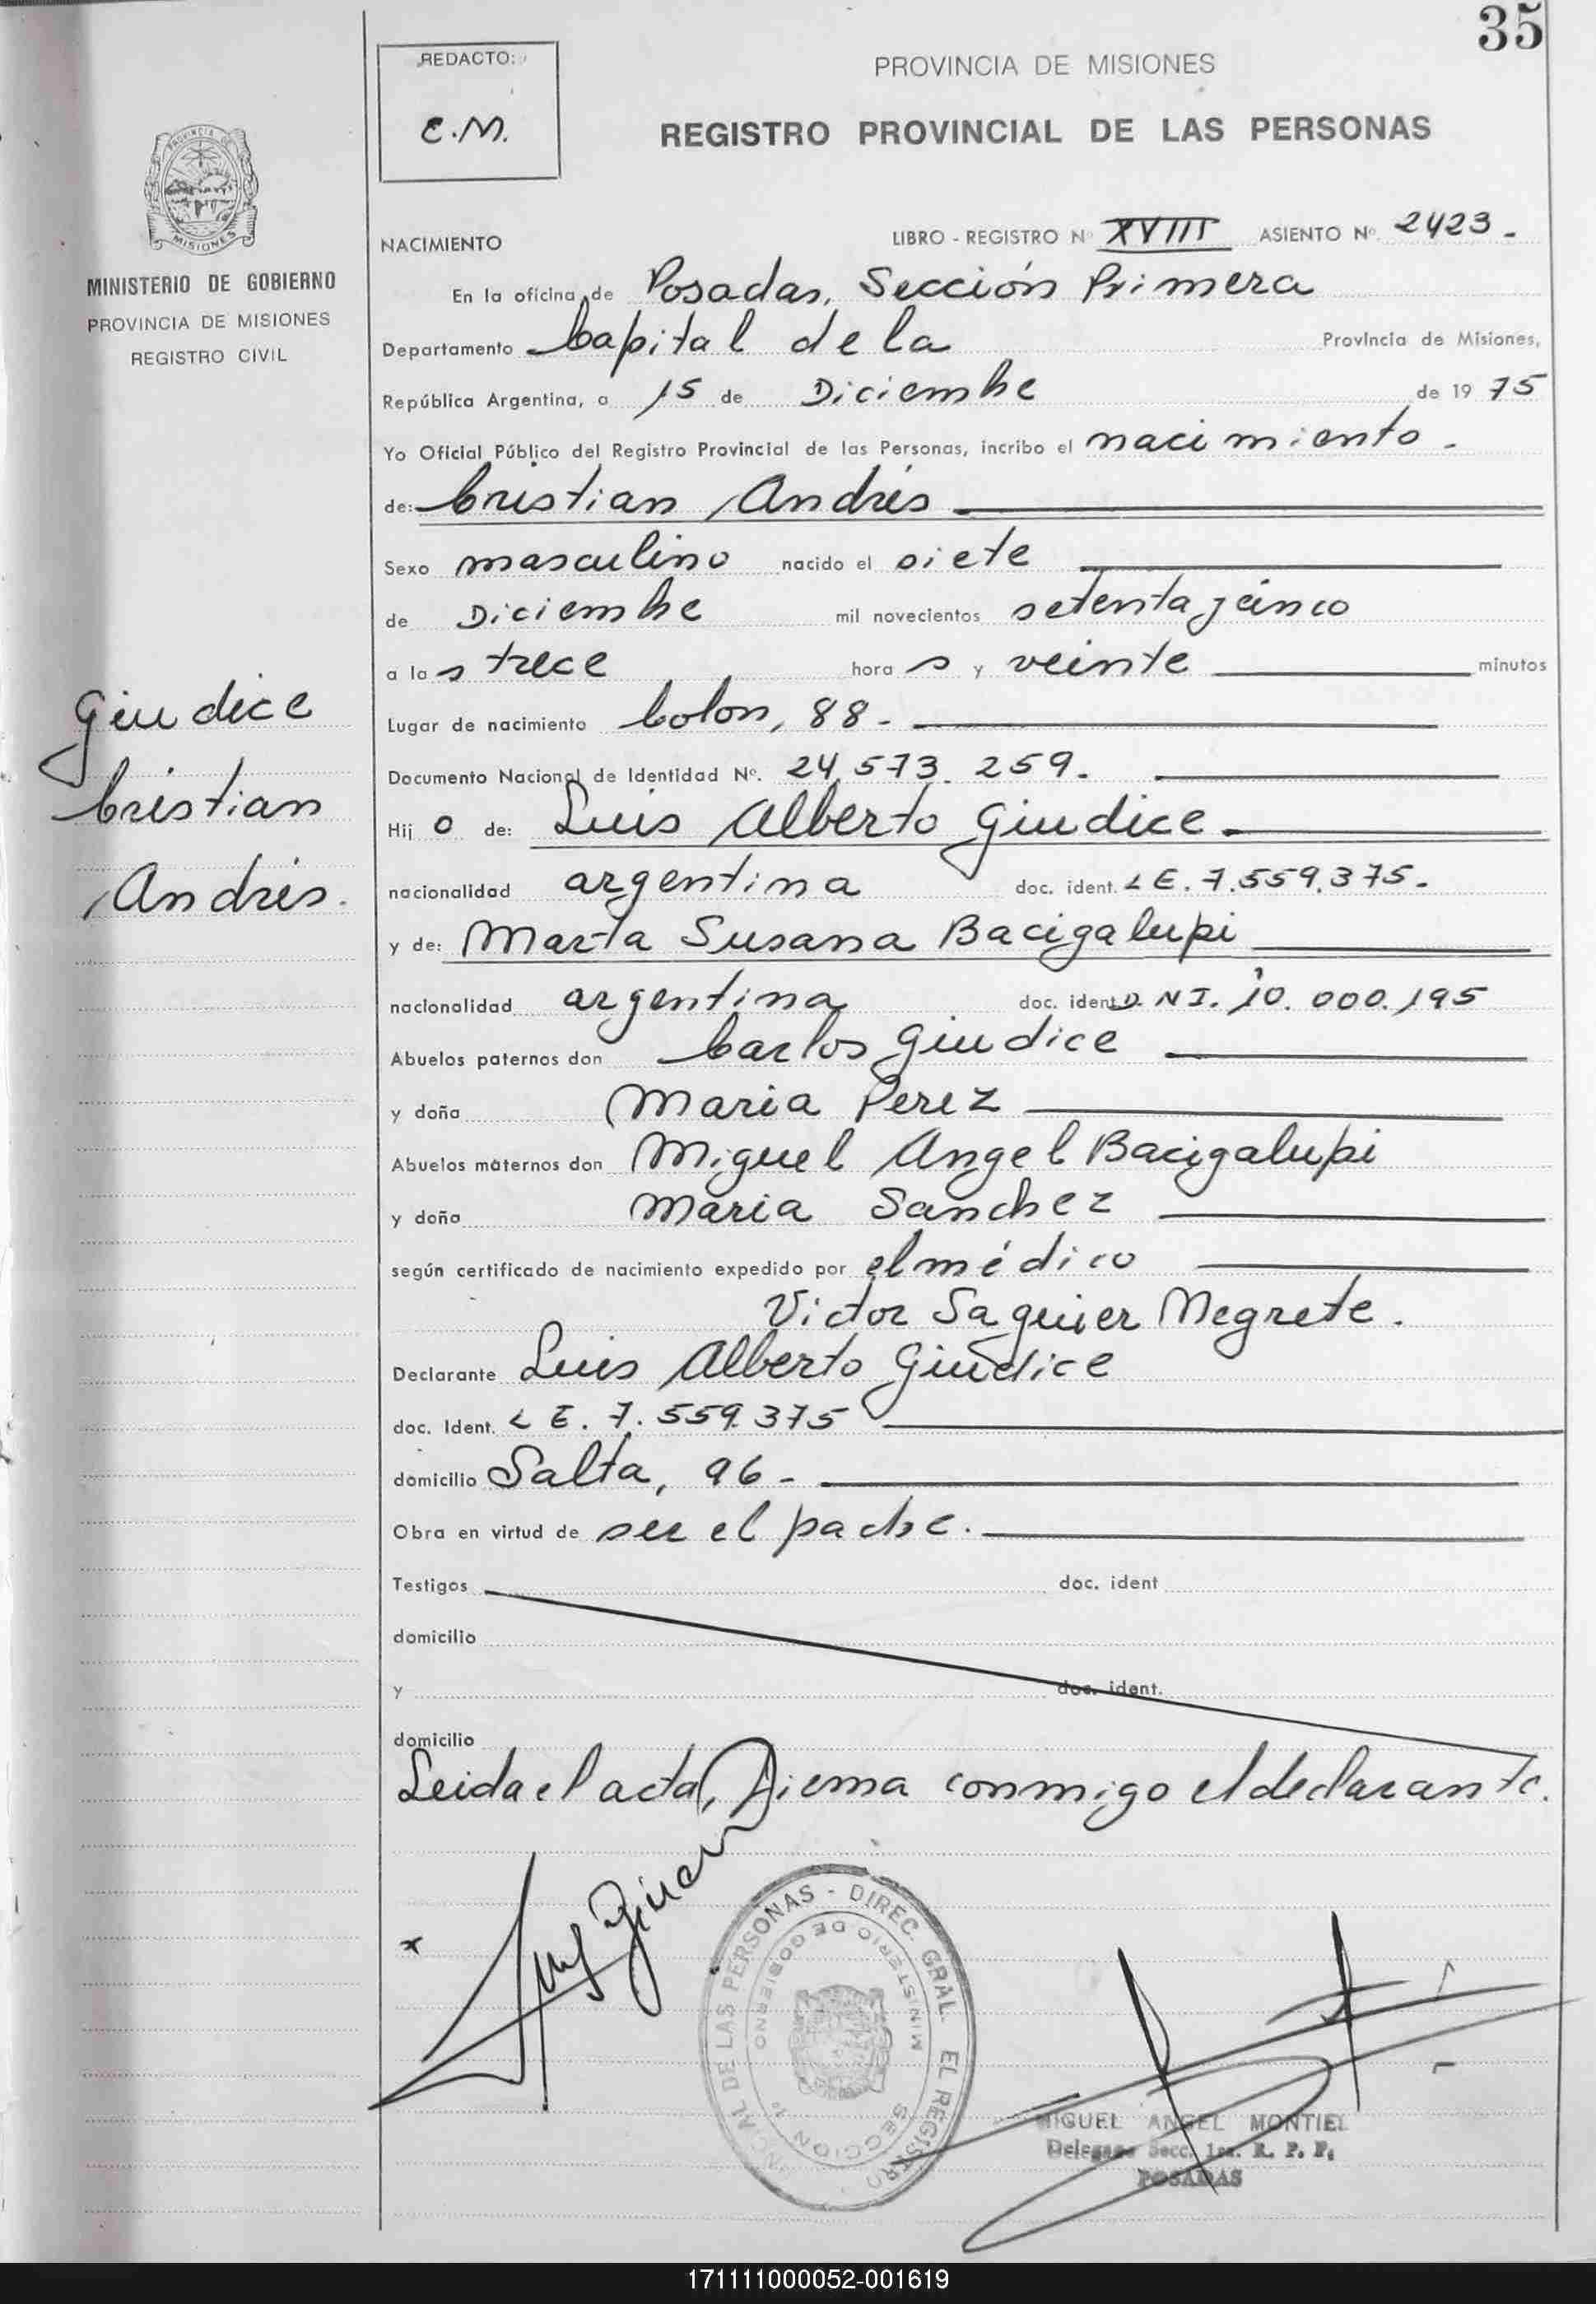 35
REDACTO:
C.M.
PROVINCIA DE MISIONES
REGISTRO PROVINCIAL DE LAS PERSONAS
PROVINCIA DE
MISIONES
MINISTERIO DE GOBIERNO
PROVINCIA DE MISIONES
REGISTRO CIVIL
NACIMIENTO LIBRO - REGISTRO Nº XVIII ASIENTO Nº. 2423.
En la oficina de Posadas, Sección Primera
Departamento Capital de la Provincia de Misiones,
República Argentina, a 15 de Diciembre de 1975
Yo Oficial Público del Registro Provincial de las Personas, incribo el nacimiento.
de: Cristian Andrés
Sexo masculino nacido el siete
de Diciembre mil novecientos setenta y cinco
a las trece horas y veinte minutos
Giudice
Cristian
Andrés.
Lugar de nacimiento Colon, 88-
Documento Nacional de Identidad Nº. 24.573.259.
Hijo de: Luis Alberto Giudice
nacionalidad argentina doc. ident. LE. 7.559.375.
y de: Marta Susana Bacigalupi
nacionalidad argentina doc. ident. D.NI. 10.000.195
Abuelos paternos don Carlos Giudice
y doña Maria Perez
Abuelos maternos don Miguel Angel Bacigalupi
y doña Maria Sanchez
según certificado de nacimiento expedido por el médico
Victor Saguier Negrete.
Declarante Luis Alberto Giudice
doc. Ident. LE. 7.559.375
domicilio Salta, 96-
Obra en virtud de ser el padre.
Testigos doc. ident
domicilio
y doc. ident.
domicilio
Leida el acta, Firma conmigo el declarante.
DIREC. GRAL. EL REGISTRO PROVINCIAL DE LAS PERSONAS -
MINISTERIO DE GOBIERNO
SECCION 1ª
MIGUEL ANGEL MONTIEL
Delegado Secc. 1ra. R. P. P.
POSADAS
171111000052-001619